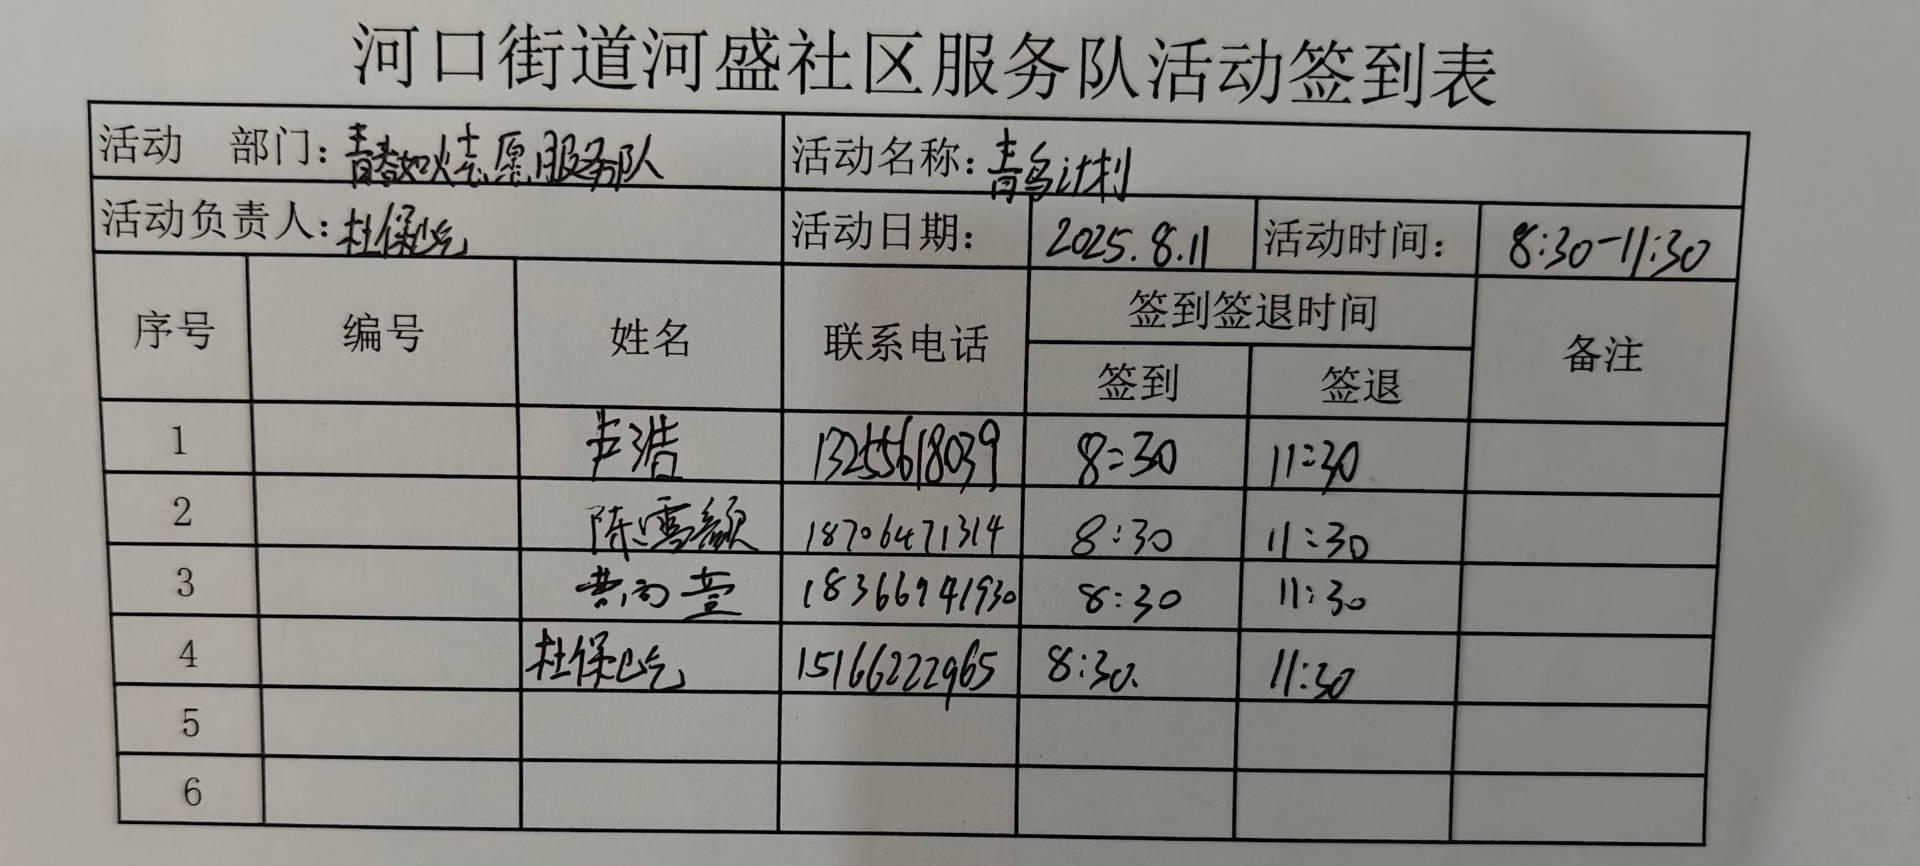 河口街道河盛社区服务队活动签到表
活动 部门：青春如火志愿服务队 活动名称：青鸟计划
活动负责人：杜保屹 活动日期： 2025.8.11 活动时间： 8:30-11:30
序号 编号 姓名 联系电话 签到签退时间 备注
签到 签退
1 卢浩 13255618039 8:30 11:30
2 陈雪颜 18706471314 8:30 11:30
3 黄雨萱 18366941930 8:30 11:30
4 杜保屹 15166222965 8:30. 11:30
5
6